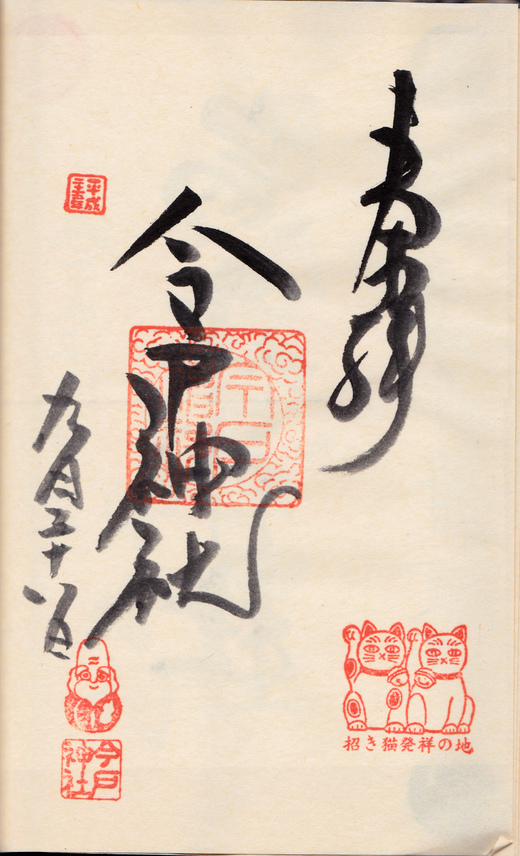 奉拝
招き猫発祥の地
今戸神社
平成
九月二十八日
今戸
神社